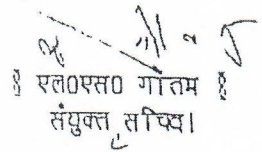 एल0एस0 गौतम
संयुक्त सचिव।